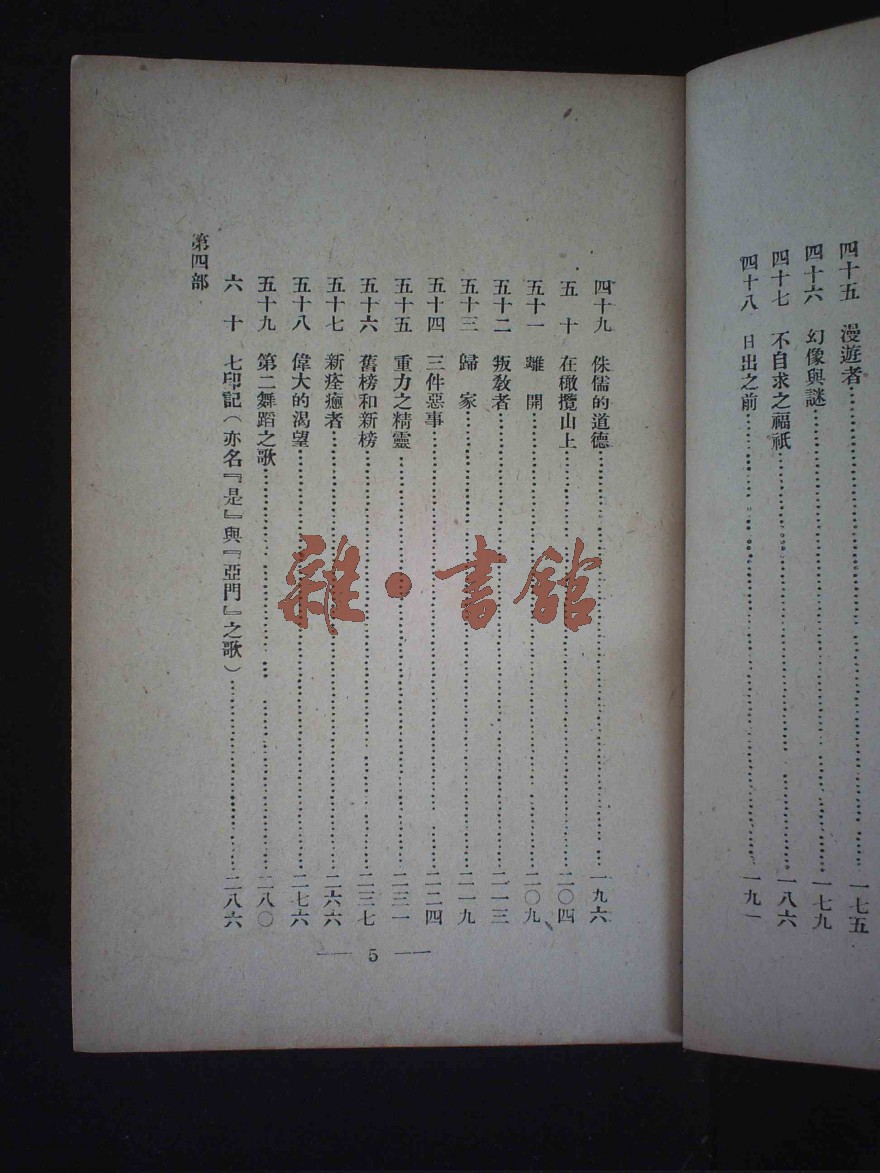 四十五 漫遊者……一七五
四十六 幻像與謎……一七九
四十七 不自求之福祇……一八六
四十八 日出之前……一九一
四十九 侏儒的道德……一九六
五十 在橄欖山上……二〇四
五十一 離開……二〇九
五十二 叛教者……二一三
五十三 歸家……二一九
五十四 三件惡事……二二四
五十五 重力之精靈……二三一
五十六 舊榜和新榜……二三七
五十七 新痊癒者……二六六
五十八 偉大的渴望……二七六
五十九 第二舞蹈之歌……二八〇
六十 七印記(亦名『是』與『亞門』之歌)……二八六
第四部
— 5 —
雜·書館